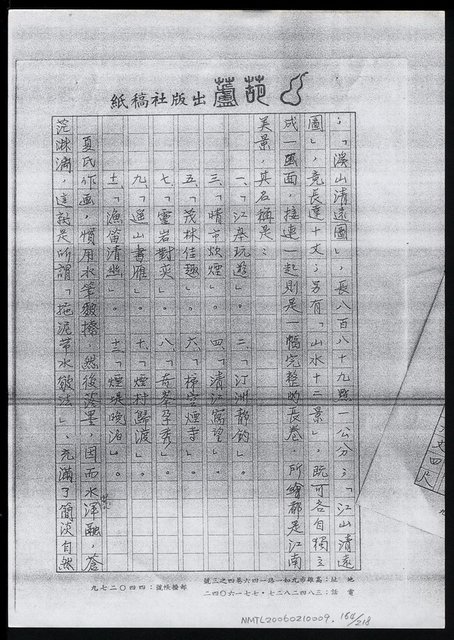 葫蘆苑出版社稿紙
；「溪山清遠圖」，長八百八十九點一公分；「江山清遠
圖」，竟長達十丈；另有「山水十二景」，既可各自獨立
成一畫面，接連一起則是一幅完整的長卷，所繪都是江南
美景，其名稱是：
一、「江皋玩遊」。二、「汀洲靜釣」。
三、「晴市炊煙」。四、「清江寫望」。
五、「茂林佳趣」。六、「梯空煙寺」。
七、「靈岩對奕」。八、「奇峯孕秀」。
九、「遙山書雁」。十、「煙村歸渡」。
十一、「漁笛清幽」。十二、「煙堤晚泊」。
夏氏作畫，慣用水筆皴擦，然後潑墨，因而水渾融，蒼
茫淋漓，這就是所謂「拖泥帶水皴法」，充滿了簡淡自然
地址：高雄市九如一路一四六巷四之三號
電話：三八四二八二七・七七一六〇四二
郵撥帳號：四四〇二七九
NMTL20060210009. 164/218